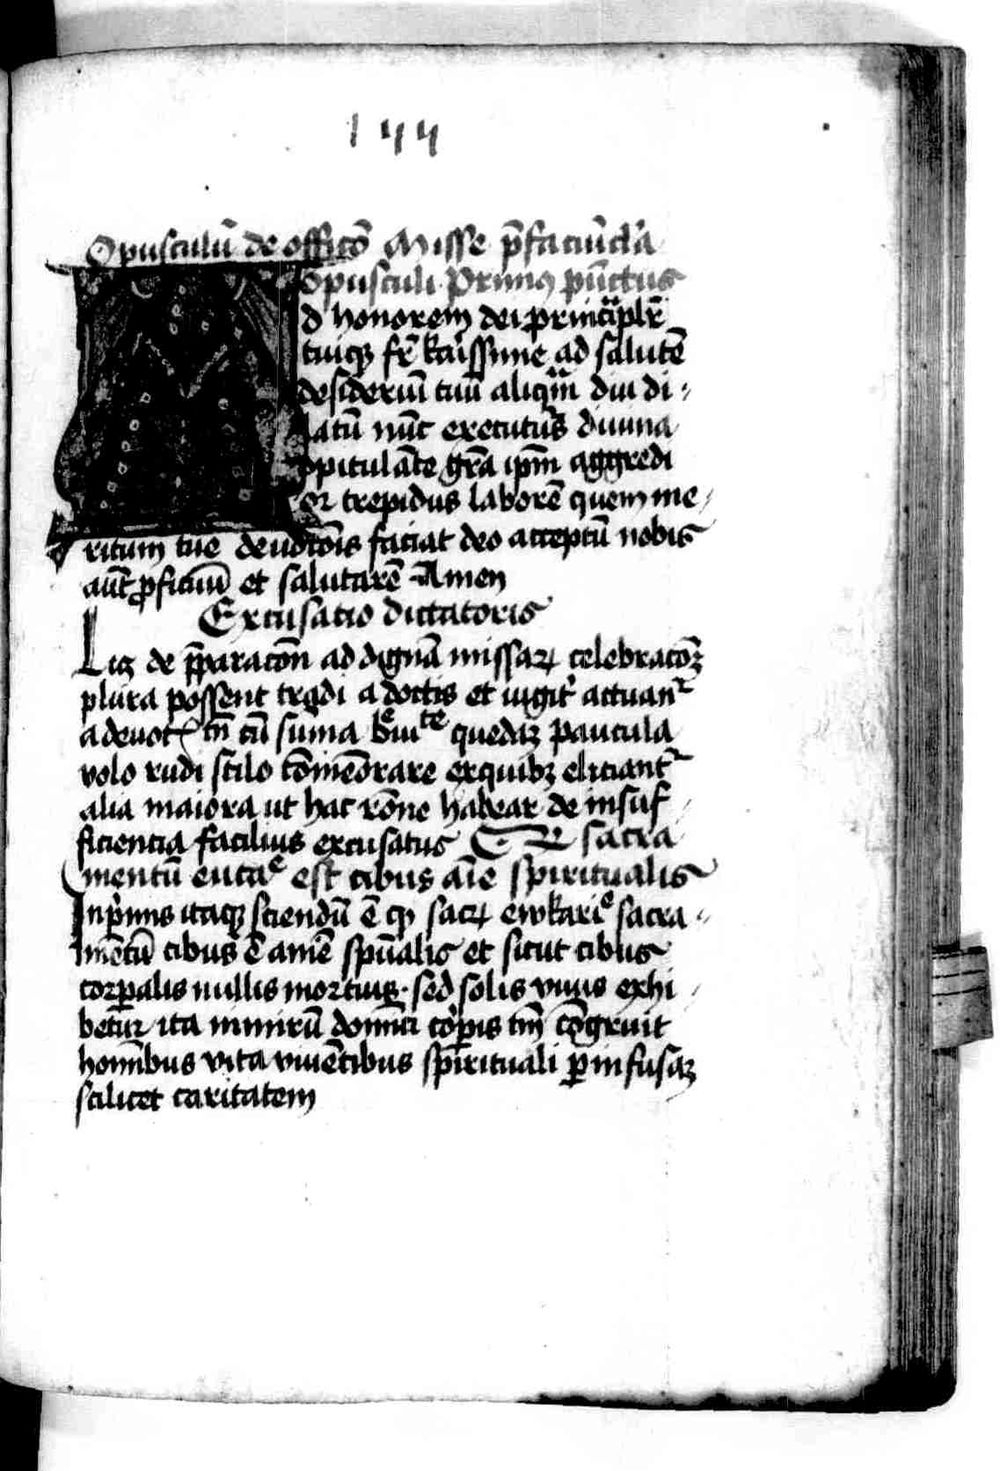 144
Opusculū de offitō Misse p̄fatiūcla
opusculi Primꝰ pūctus
d honorem dei principalr̄
tuiqꝫ fr̄ kaissime ad salutē
desideriū tuū aliqm̄ diu di-
latū nūc executurꝰ diuina
opitulāte gr̄a ipm̄ aggredi
or trepidus laborē quem me-
ritum tue deuotōis faciat deo acceptū nobis
aūt ꝓficuū et salutarē Amen
Excusatio dictatoris
Licꝫ de p̄paratōn ad dignā missaꝝ celebratōꝫ
plura possent tradi a doctis et iugit᷑ actuant᷑
a deuot tn̄ cū sūma beuite quedaꝫ paucula
volo rudi stilo cōmēorare ex quibꝫ eliciant᷑
alia maiora ut hac rōne habear de insuf-
ficientia facilius excusatus sacra
mentū eucae est cibus aīe spiritualis
Inp̄mis itaqꝫ sciendū ē ꝙ sacꝝ ewkarie sacra-
mētū cibus ē amē spūalis et sicut cibus
corꝑalis nullis mortuis sed solis viuis exhi-
betur ita nimirū domīci corꝑis tm̄ cōgruit
homībus vita viuētibus spirituali ꝑ infusaꝫ
scilicet caritatem